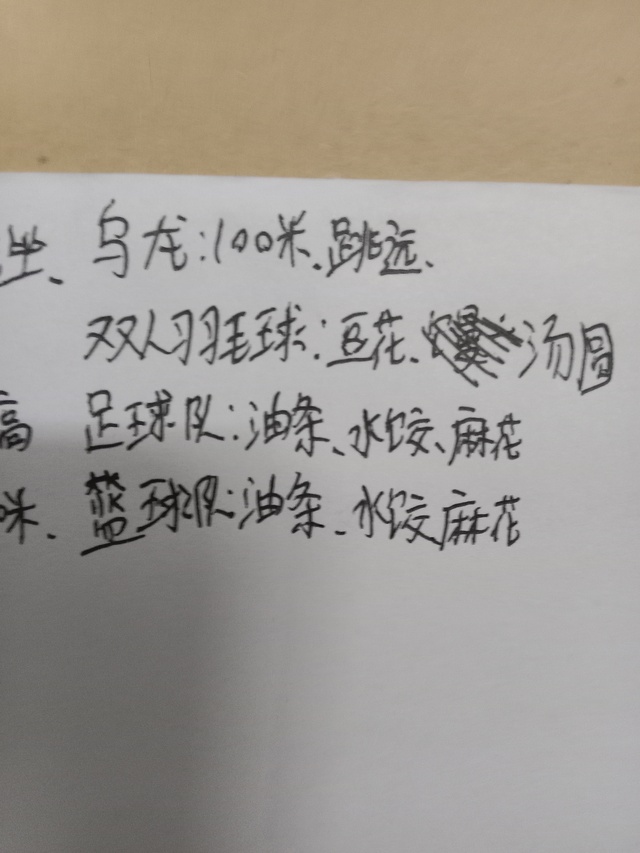 坐、乌龙:100米、跳远、
双人羽毛球:豆花、汤圆
高 足球队:油条、水饺、麻花
米、篮球队:油条、水饺麻花